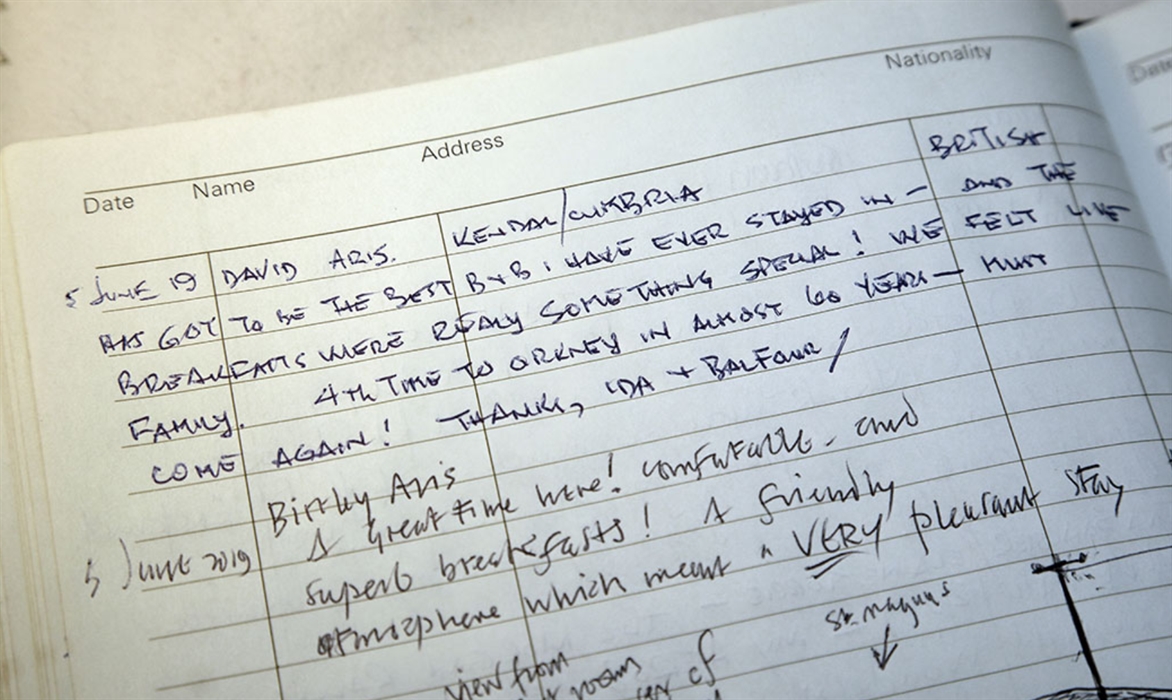 Date Name Address Nationality
5 JUNE 19 DAVID ARIS. KENDAL/CUMBRIA BRITISH
HAS GOT TO BE THE BEST B+B I HAVE EVER STAYED IN – AND THE
BREAKFASTS WERE REALLY SOMETHING SPECIAL! WE FELT LIKE
FAMILY. 4TH TIME TO ORKNEY IN ALMOST 60 YEARS – MUST
COME AGAIN! THANKS, IDA + BALFOUR/
Aris
5 June 2019 A great time here! comfortable and
superb breakfasts! A friendly
atmosphere which meant a VERY pleasant stay
St. magnus
view from
room
of